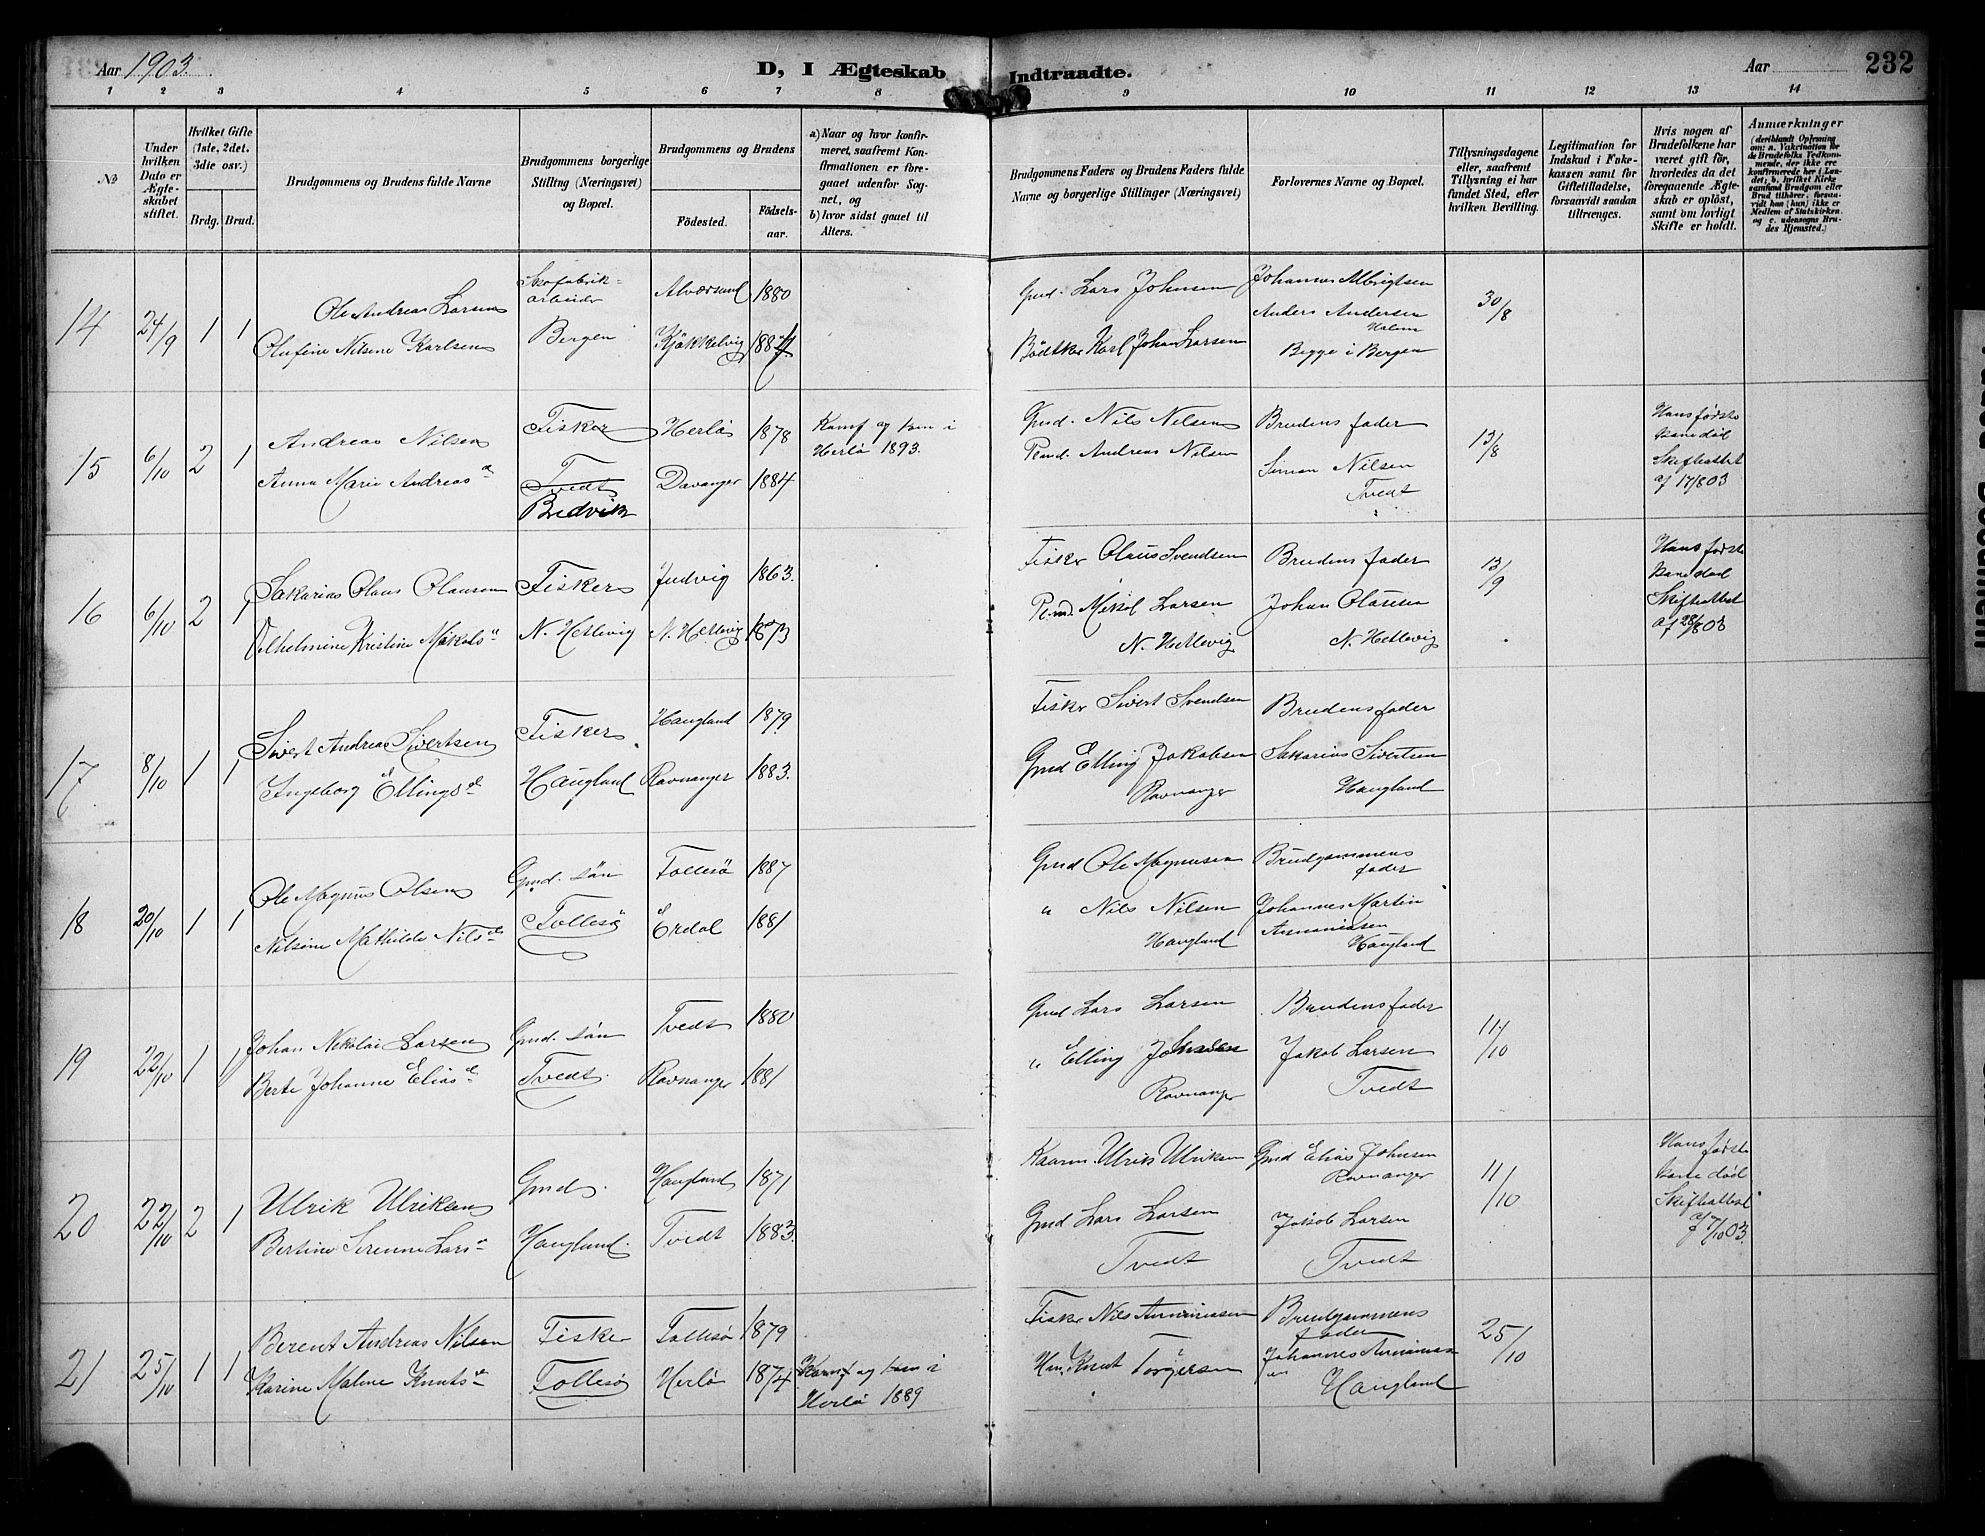 Aar 1903.
D, I Ægteskab Indtraadte.
Aar
232
1 2 3 4 5 6 7 8 9 10 11 12 13 14
№
Under hvilken Dato er Ægteskabet stiftet.
Hvilket Gifte (1ste, 2det, 3die osv.)
Brdg.
Brud.
Brudgommens og Brudens fulde Navne
Brudgommens borgerlige Stilling (Næringsvei) og Bopæl.
Brudgommens og Brudens
Fødested.
Fødselsaar.
a) Naar og hvor konfirmeret, saafremt Konfirmationen er foregaaet udenfor Sognet, og
b) hvor sidst gaaet til Alters.
Brudgommens Faders og Brudens Faders fulde Navne og borgerlige Stillinger (Næringsvei)
Forlovernes Navne og Bopæl.
Tillysningsdagene eller, saafremt Tillysning ei har fundet Sted, efter hvilken Bevilling.
Legitimation for Indskud i Enkekassen samt for Giftetilladelse, forsaavidt saadan tiltrænges.
Hvis nogen af Brudefolkene har været gift før, hvorledes da det foregaaende Ægteskab er opløst, samt om lovligt Skifte er holdt.
Anmærkninger
(deriblandt Oplysning om: a. Vakcination for de Brudefolks Vedkommende, der ikke ere konfirmerede her i Landet; b. hvilket Kirkesamfund Brudgom eller Brud tilhører, forsaavidt han (hun) ikke er Medlem af Statskirken, og c. udensogns Brudes Hjemsted.)
14 24/9 1 1
Ole Andreas Larsen
Olufine Nilsine Karlsen
Skofabrikarbeider
Bergen
Alværsund 1880
Kjøkkelvig
Gmd. Lars Johnsen
Bødtker Karl Johan Larsen
Johannes Albrigtsen
Anders Andersen
Begge i Bergen
30/8
15 6/10 2 1
Andreas Nilsen
Anna Marie Andreasd
Fisker
Tvedt
Bredvik
Herlø 1878
Davanger 1884
Konf og kom i
Herlø 1893.
Gmd. Nils Nilsen
Andreas Nilsen
Brudens fader
Simon Nilsen
Tvedt
13/8
Hans første
kone død
Skifteattest
af 17/8 03
16 6/10 2 1
Sakarias Olaus Olausen
Vilhelmine Kristine
Fisker
N. Hetlevig
Judvig 1863.
N. Hetlevig 1873
Fisker Olaus Svendsen
Larsen
N. Hetlevig
Brudens fader
Johan Olausen
N. Hetlevig
13/9
Hans første
kone død
Skifteattest
af 28/8 03
17 8/10 1 1
Sivert Andreas Sivertsen
Ingeborg Ellingsd
Fisker
Haugland
Haugland 1879
Ravnanger 1883.
Fisker Sivert Svendsen
Gmd Elling Jakobsen
Ravnanger
Brudens fader
Sakarias Sivertsen
Haugland
18 20/10 1 1
Ole Magnus Olsen
Nilsine Mathilde Nilsd
Gmd. søn
Follesø
Follesø 1887
Erdal 1881
Gmd Ole Magnusen
" Nils Nilsen
Haugland
Brudgommens
fader
Johannes Martin
Ananiassen
Haugland
19 22/10 1 1
Johan Nikolai Larsen
Berte Johanne Eliasd
Gmd. søn
Tvedt.
Tvedt 1880
Ravnanger 1881
Gmd Lars Larsen
" Elling Johnsen
Ravnanger
Brudens fader
Jakob Larsen
Tvedt
11/10
20 22/10 2 1
Ulrik Ulriksen
Bertine Serenne Larsd
Gmd.
Haugland.
Haugland 1871
Tvedt 1883.
Kaarm. Ulrik Ulriksen
Gmd Lars Larsen
Tvedt
Gmd Elias Johnsen
Ravnanger
Jakob Larsen
Tvedt
11/10
Hans første
kone død
Skifteattest
af 7/10 03.
21 25/10 1 1
Berent Andreas Nilsen
Karine Malene Knutsd
Fisker
Follesø
Follesø 1879
Herlø 1874
Konf og kom i
Herlø 1889
Fisker Nils Ananiassen
Hm. Knut Torgersen
Brudgommens
fader
Johannes Ananiassen
Haugland
25/10